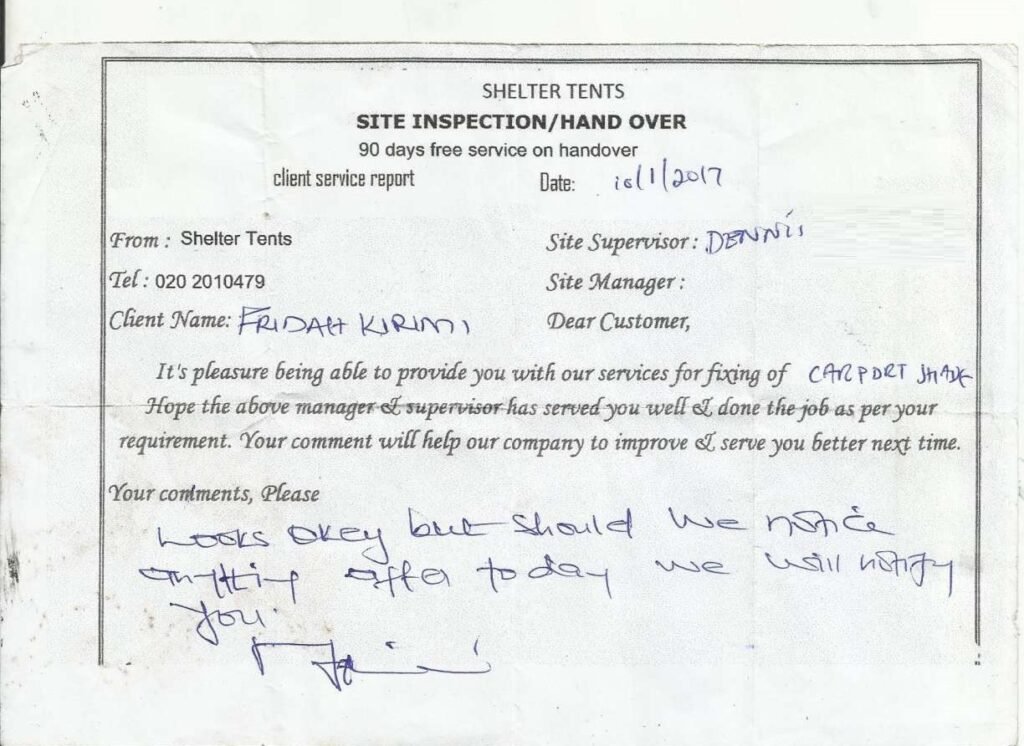 SHELTER TENTS
SITE INSPECTION/HAND OVER
90 days free service on handover
client service report Date: 10/1/2017
From : Shelter Tents Site Supervisor : DENNIS
Tel : 020 2010479 Site Manager :
Client Name: FRIDAH KIRIMI Dear Customer,
It's pleasure being able to provide you with our services for fixing of CARPORT SHADE
Hope the above manager & supervisor has served you well & done the job as per your
requirement. Your comment will help our company to improve & serve you better next time.
Your comments, Please
Looks okey but should we notice
anything after today we will notify
you.